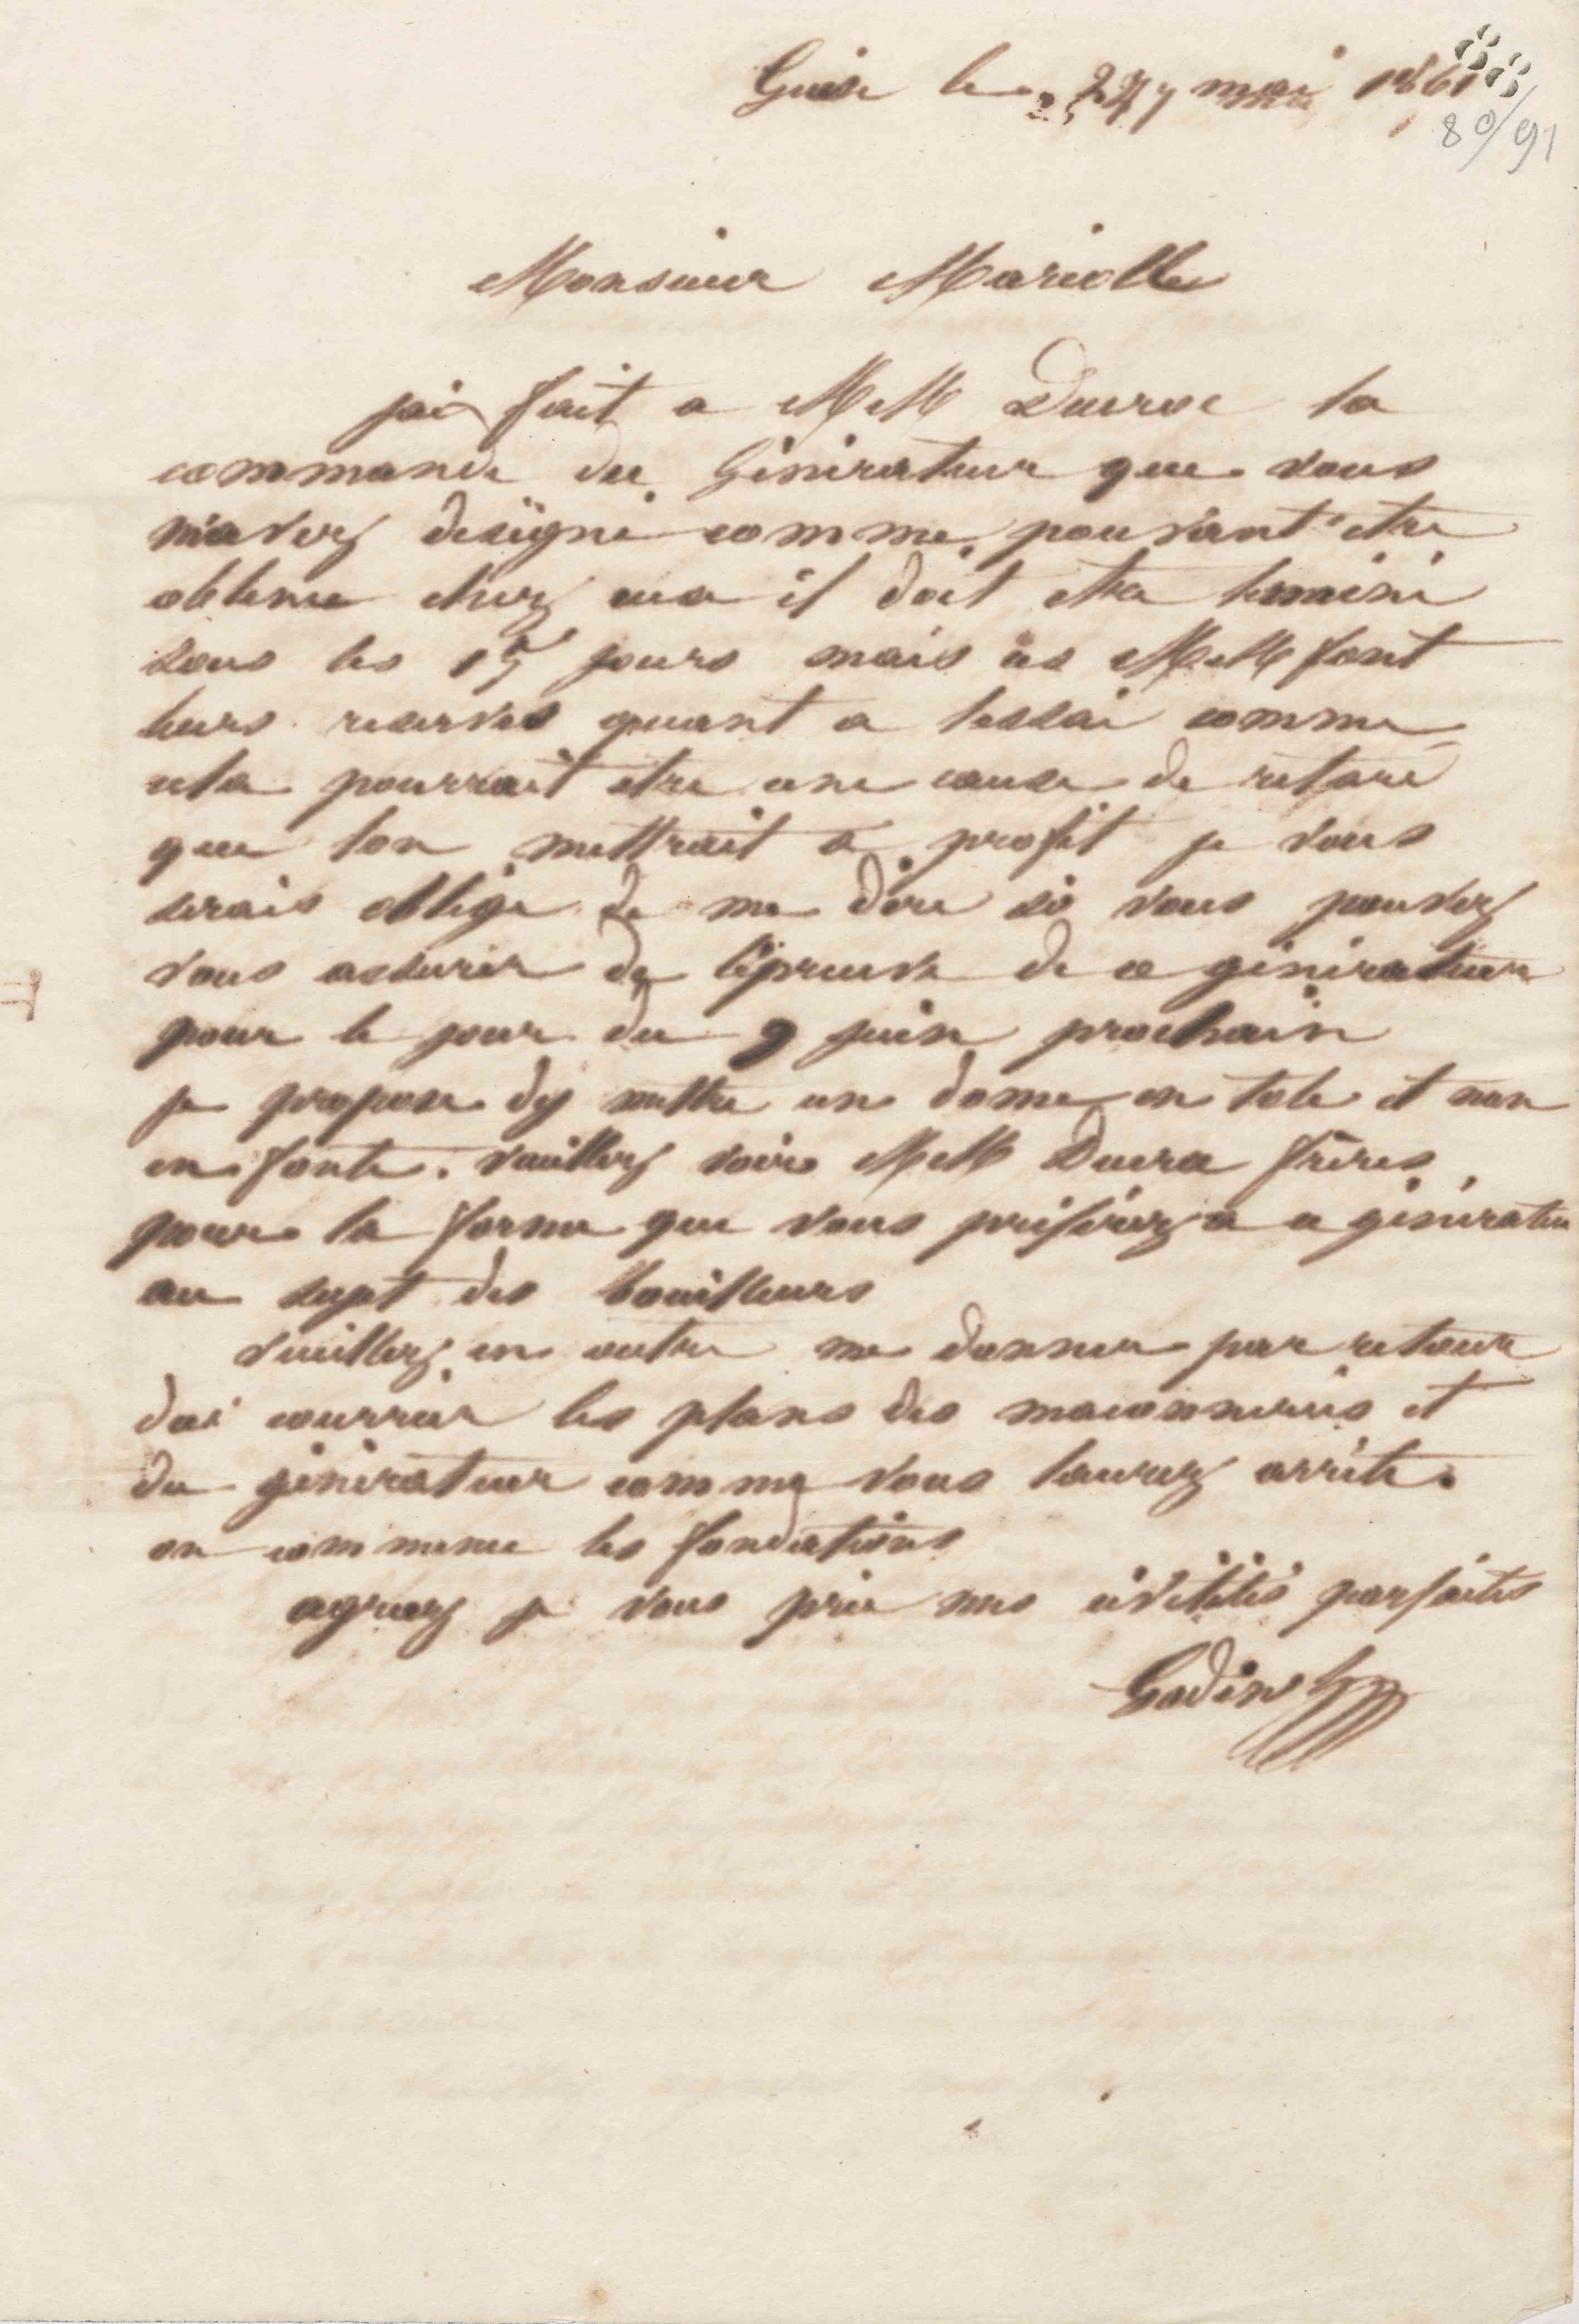 Guise le 27 mai 1861
88
80/91
Monsieur Mariolle
jai fait a MM Ducroc la
commande du Générateur que vous
m'avez designé comme pouvant etre
obtenu chez eux il doit etre terminé
sous les 15 jours mais ces MM font
leurs reserves quant a lessai comme
cela pourrait etre une cause de retard
que lon mettrait a profit je vous
serais obligé de me dire si vous pouvez
vous assurer de l'épreuve de ce générateur
pour le jour du 9 juin prochain
je propose dy mettre un dome en tole et non
en fonte. veuillez voir MM frères
pour la forme que vous préférez a ce générateur
au sujet des bouilleurs
veuillez en outre me donner par retour
du courrier les plans des maconneries et
du générateur comme vous laurez arrêté.
on commence les fondations
agreez je vous prie mes civilités parfaites
Godin